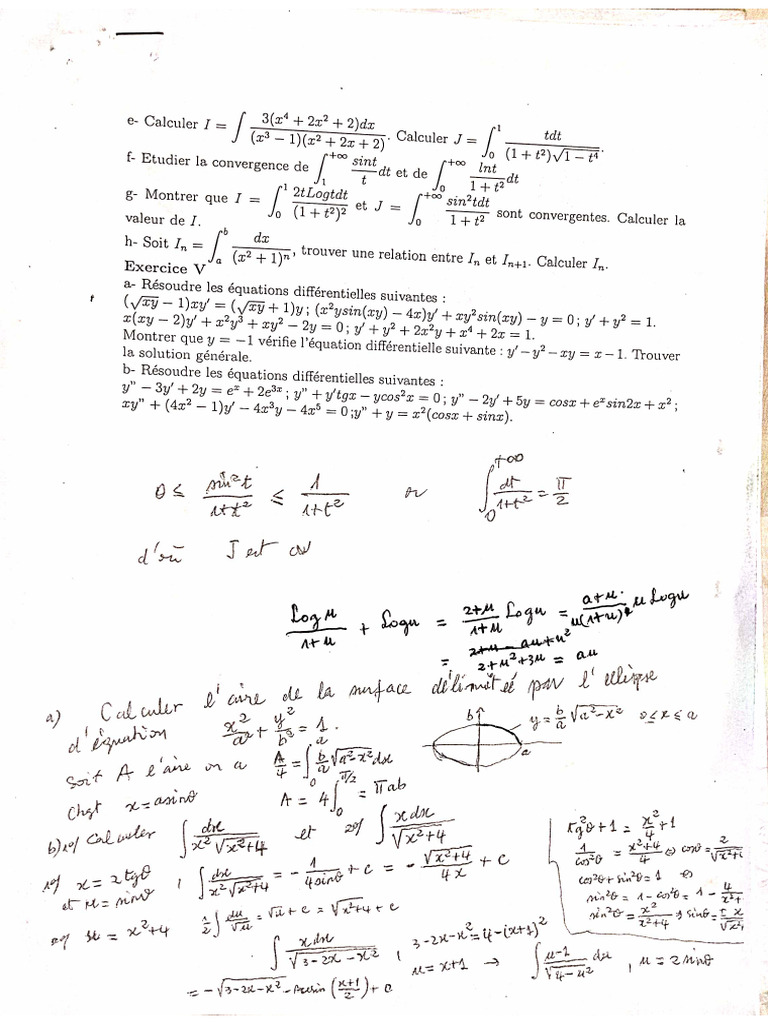 e- Calculer I = ∫ 3(x⁴ + 2x² + 2)dx / (x³ − 1)(x² + 2x + 2). Calculer J = ∫₀¹ tdt / (1 + t²)√(1 − t⁴).
f- Etudier la convergence de ∫₁^{+∞} sint/t dt et de ∫₀^{+∞} lnt/(1 + t²) dt
g- Montrer que I = ∫₀¹ 2tLogtdt/(1 + t²)² et J = ∫₀^{+∞} sin²tdt/(1 + t²) sont convergentes. Calculer la
valeur de I.
h- Soit Iₙ = ∫ₐᵇ dx/(x² + 1)ⁿ, trouver une relation entre Iₙ et Iₙ₊₁. Calculer Iₙ.
Exercice V
a- Résoudre les équations différentielles suivantes :
(√xy − 1)xy′ = (√xy + 1)y ; (x²ysin(xy) − 4x)y′ + xy²sin(xy) − y = 0 ; y′ + y² = 1.
x(xy − 2)y′ + x²y³ + xy² − 2y = 0 ; y′ + y² + 2x²y + x⁴ + 2x = 1.
Montrer que y = −1 vérifie l'équation différentielle suivante : y′ − y² − xy = x − 1. Trouver
la solution générale.
b- Résoudre les équations différentielles suivantes :
y" − 3y′ + 2y = eˣ + 2e³ˣ ; y" + y′tgx − ycos²x = 0 ; y" − 2y′ + 5y = cosx + eˣsin2x + x² ;
xy" + (4x² − 1)y′ − 4x³y − 4x⁵ = 0 ;y" + y = x²(cosx + sinx).
0 ≤ sin²t/(1+t²) ≤ 1/(1+t²) or ∫₀^{+∞} dt/(1+t²) = π/2
d'où J est cv
Log u/(1+u) + Log u = (2+u)/(1+u) Log u = (a+u)/(u(1+u)) u Log u
= 2+u²+3u = au
a) Calculer l'aire de la surface délimitée par l'ellipse
d'équation x²/a² + y²/b² = 1. b a y = b/a √(a²−x²) 0 ≤ x ≤ a
Soit A l'aire on a A/4 = ∫₀ᵃ b/a √(a²−x²) dx
Chgt x = a sinθ A = 4∫₀^{π/2} = πab
b) 1°/ Calculer ∫ dx/(x²√(x²+4)) et 2°/ ∫ x dx/√(x²+4)
1°/ x = 2tgθ , ∫ dx/(x²√(x²+4)) = −1/(4 sinθ) + c = −√(x²+4)/(4x) + c
et u = sinθ
2°/ u = x²+4 1/2 ∫ du/√u = √u + c = √(x²+4) + c
tg²θ + 1 = x²/4 + 1
1/cos²θ = (x²+4)/4 ⇔ cosθ = 2/√(x²+
cos²θ + sin²θ = 1 ⇔
sin²θ = 1 − cos²θ = 1 − 4/(x²+
sin²θ = x²/(x²+4) ⇒ sinθ = x/√(x²,
∫ x dx/√(3−2x−x²) , 3−2x−x² = 4−(x+1)²
u = x+1 → ∫ (u−1)/√(4−u²) du , u = 2 sinθ
= −√(3−2x−x²) − Arcsin((x+1)/2) + c